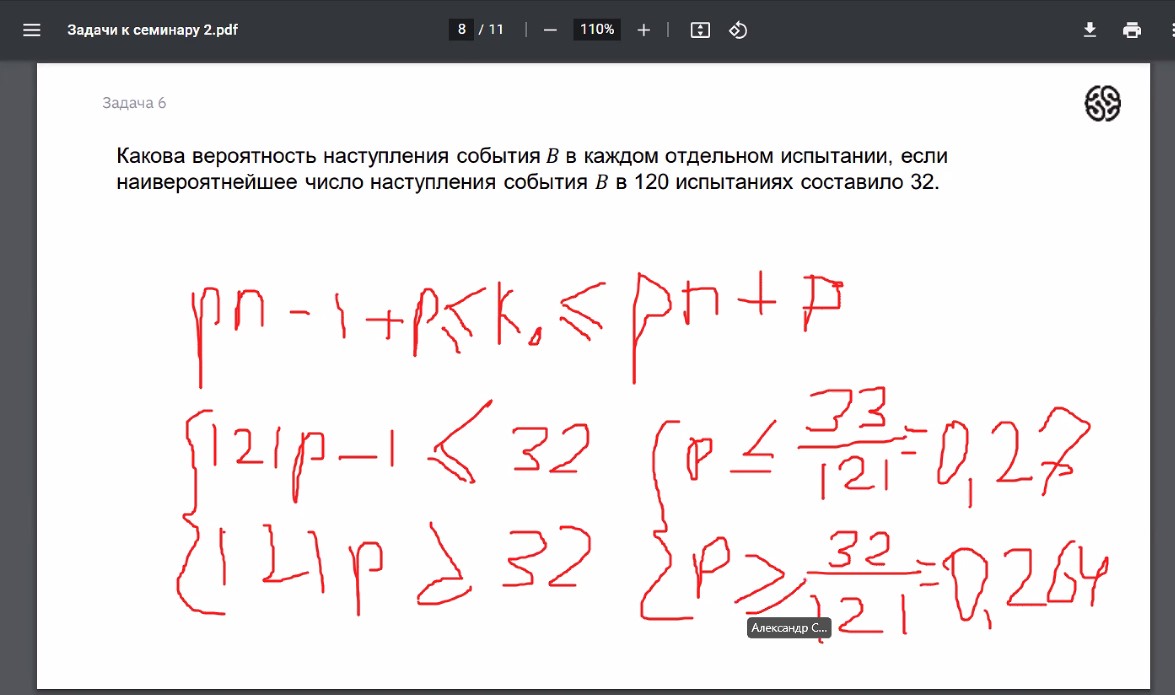 Задачи к семинару 2.pdf
8 / 11
110%
Задача 6
Какова вероятность наступления события B в каждом отдельном испытании, если
наивероятнейшее число наступления события B в 120 испытаниях составило 32.
pn - 1 + p ≤ k₀ ≤ pn + p
{ 121p - 1 ≤ 32 { p ≤ 33/121 = 0,27
{ 121p ≥ 32 { p ≥ 32/121 = 0,264
Александр С...